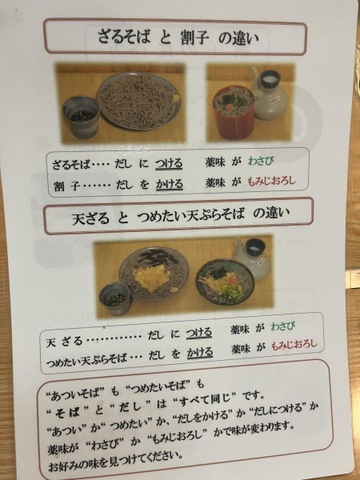 ざるそば と 割子 の違い
ざるそば‥‥ だし に つける 薬味 が わさび
割 子‥‥‥ だし を かける 薬味 が もみじおろし
天ざる と つめたい天ぷらそば の違い
天 ざる‥‥‥‥‥‥ だし に つける 薬味 が わさび
つめたい天ぷらそば‥‥ だし を かける 薬味 が もみじおろし
“あついそば” も “つめたいそば” も
“そば” と “だし” は “すべて同じ” です。
“あつい” か “つめたい” か、“だしをかける” か “だしにつける” か
薬味が “わさび” か “もみじおろし” かで味が変わります。
お好みの味を見つけてください。